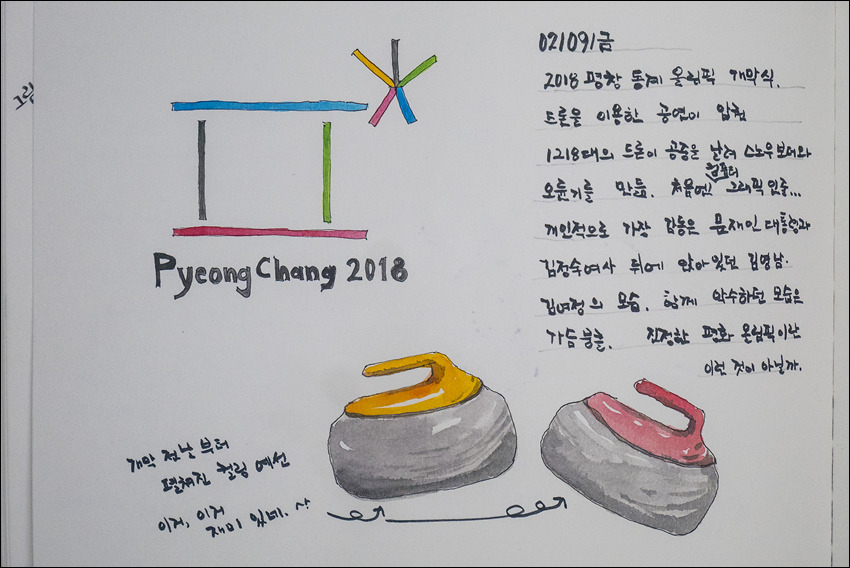 02/09/금
2018 평창 동계 올림픽 개막식.
드론을 이용한 공연이 압권
1218대의 드론이 공중을 날려 스노우보더와
컴퓨터
오륜기를 만듦. 처음엔 그래픽인줄...
개인적으로 가장 감동은 문재인 대통령과
김정숙여사 뒤에 앉아있던 김영남.
김여정의 모습. 함께 악수하던 모습은
가슴 뭉클. 진정한 평화 올림픽이란
이런 것이 아닐까.
PyeongChang 2018
개막 전날 부터
펼쳐진 컬링 예선
이거, 이거
재미 있네.
그림